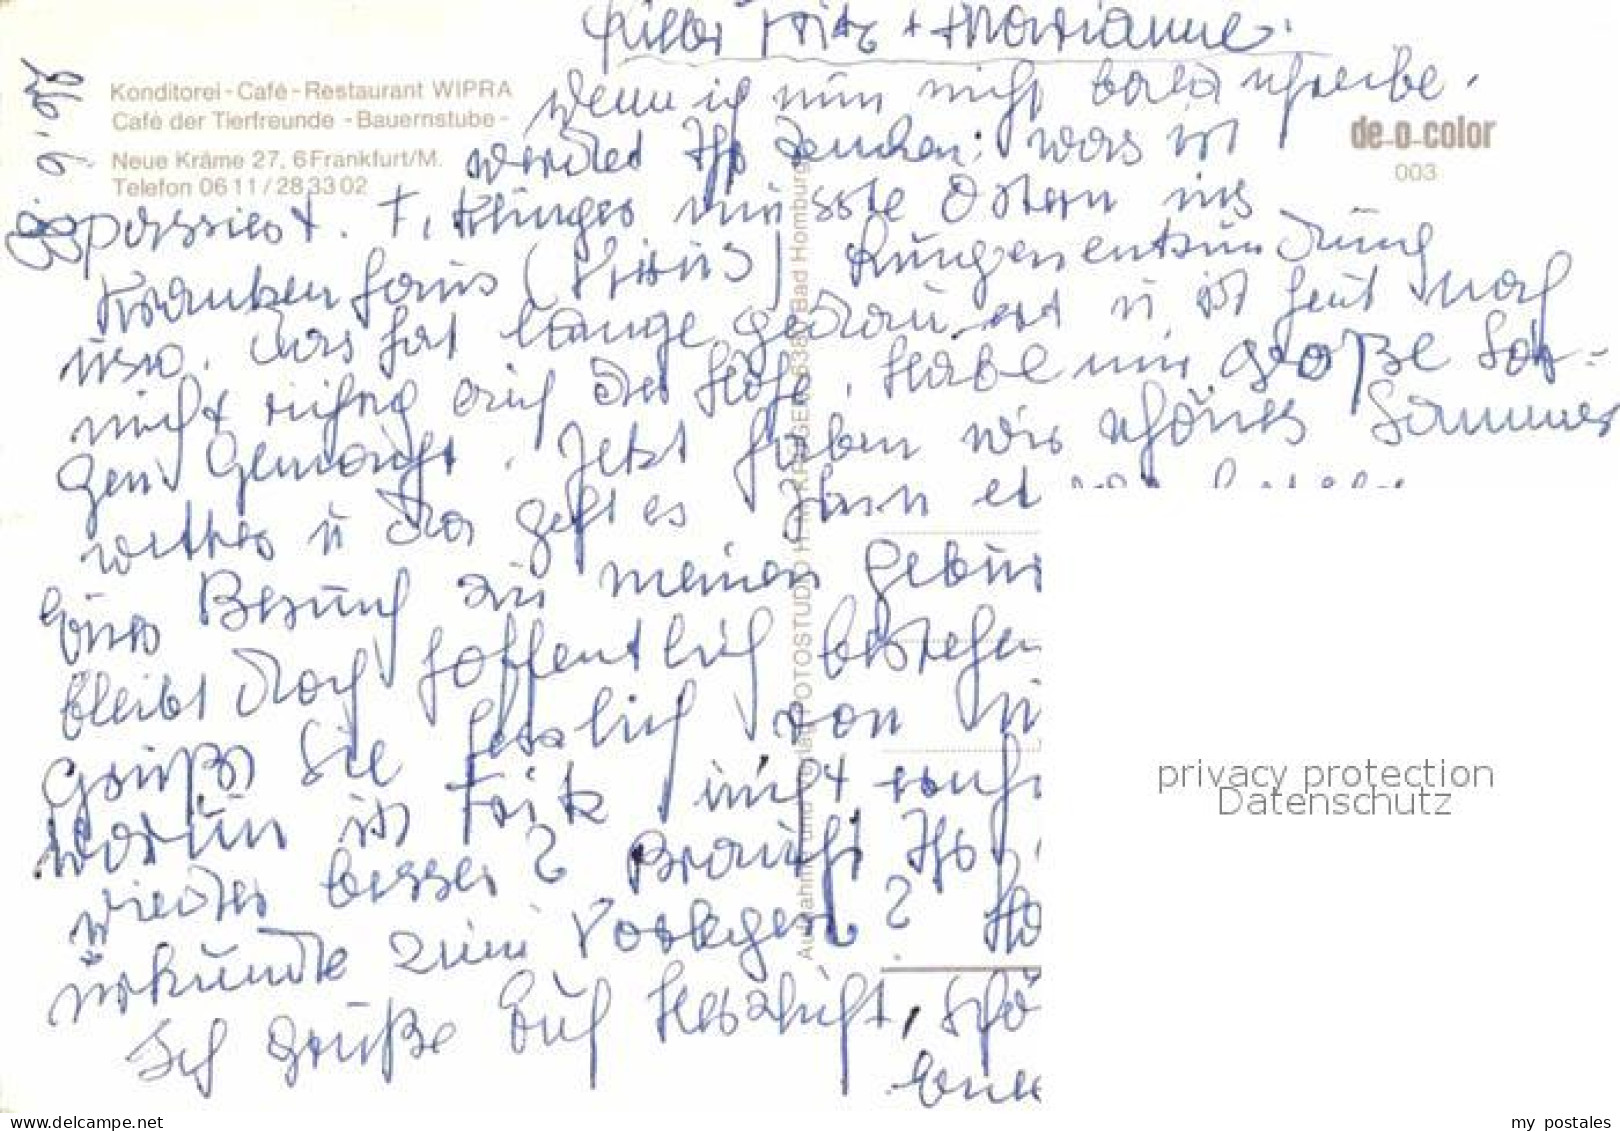 Lieber Fritz + Marianne!
Konditorei - Café - Restaurant WIPRA
Café der Tierfreunde - Bauernstube -
Neue Kräme 27, 6 Frankfurt/M.
Telefon 06 11 / 28 33 02
de-o-color
003
wenn ich nun nicht bald schreibe,
werdet Ihr denken: was ist
passiert. F. Klinger musste Ostern ins
Krankenhaus (Virus) Lungenentzündung
usw. Das hat lange gedauert u ist heut noch
nicht richtig auf der Höhe. Habe mir große Sor-
gen gemacht. Jetzt haben wir schönes Sommer
wetter u da geht es dann et
Euer Besuch zu meinen Gebur
bleibt doch hoffentlich bestehen
Grüße Sie herzlich von
Warum ist Fritz nicht
wieder besser? Braucht Ihr
urkunde zum Vorlegen?
Ich grüße Euch herzlichst,
Aufnahme und Verlag: FOTOSTUDIO H. M. KRÄGER, 638 Bad Homburg
privacy protection
Datenschutz
www.delcampe.net
my_postales